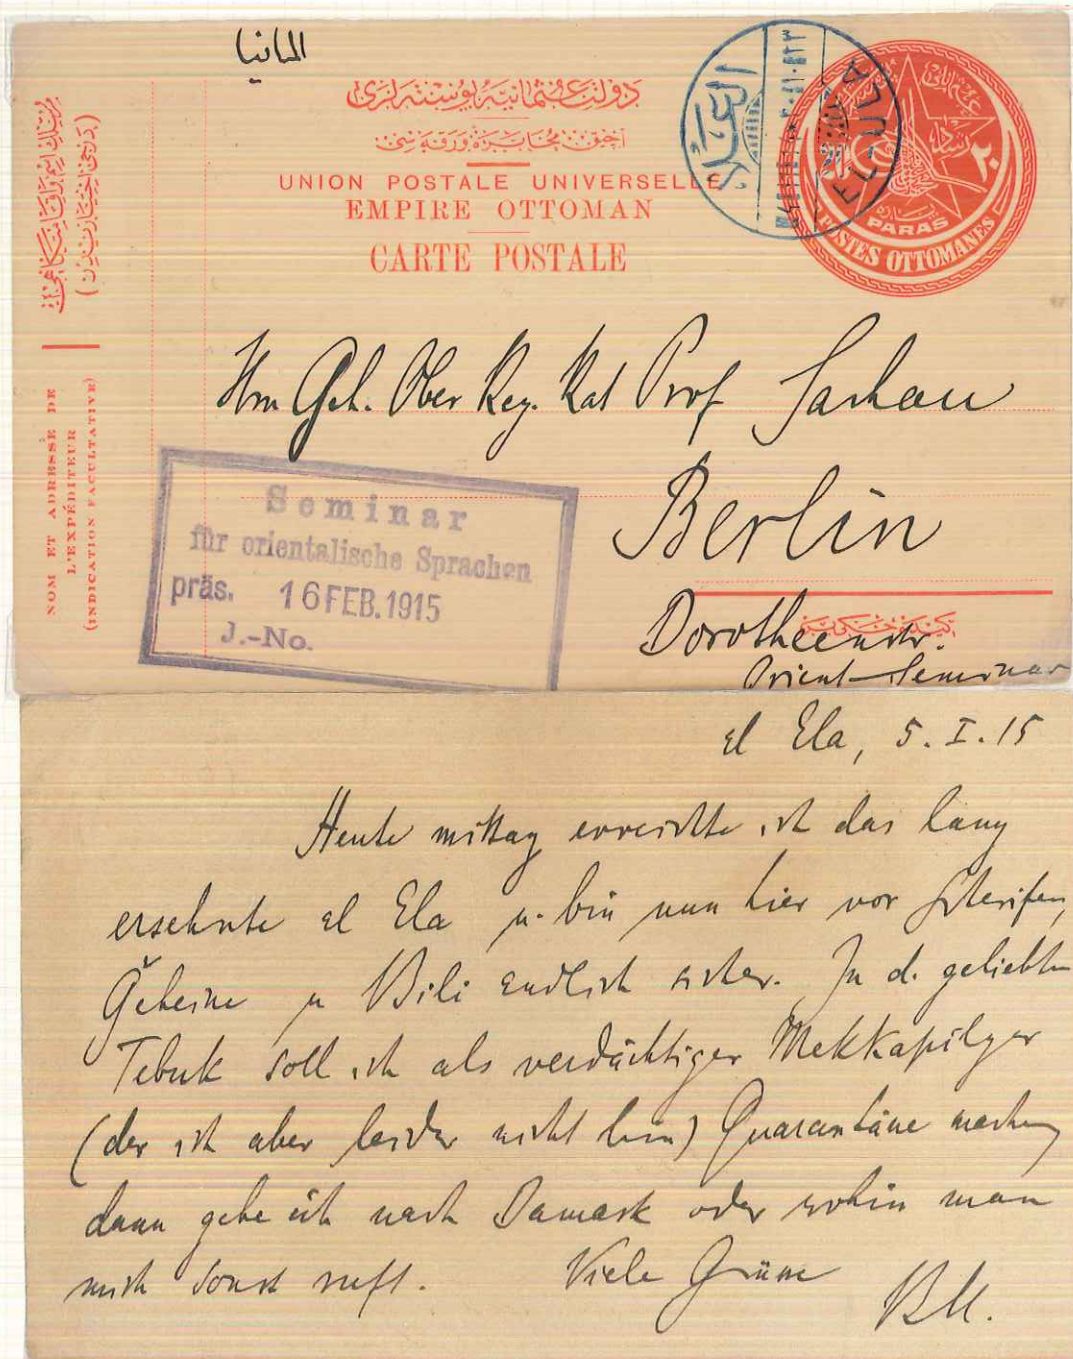 المانيا
دولت عثمانیه پوسته لری
UNION POSTALE UNIVERSELLE
EMPIRE OTTOMAN
CARTE POSTALE
العلا
EL-ULA
٢٠
PARAS
POSTES OTTOMANES
NOM ET ADRESSE DE
L'EXPÉDITEUR
(INDICATION FACULTATIVE)
Hrn Geh. Ober Reg. Rat Prof Sachau
Berlin
Dorotheenstr.
Orient-Seminar
Seminar
für orientalische Sprachen
präs. 16 FEB. 1915
J.-No.
el Ela, 5. I. 15
Heute mittag erreichte ich das lang
ersehnte el Ela u. bin nun hier vor Scherifen,
Ǧeheine u Bili endlich sicher. In d. geliebten
Tebuk soll ich als verdächtiger Mekkapilger
(der ich aber leider nicht bin) Quarantäne machen,
dann gehe ich nach Damask oder wohin man
mich sonst ruft. Viele Grüsse
BM.